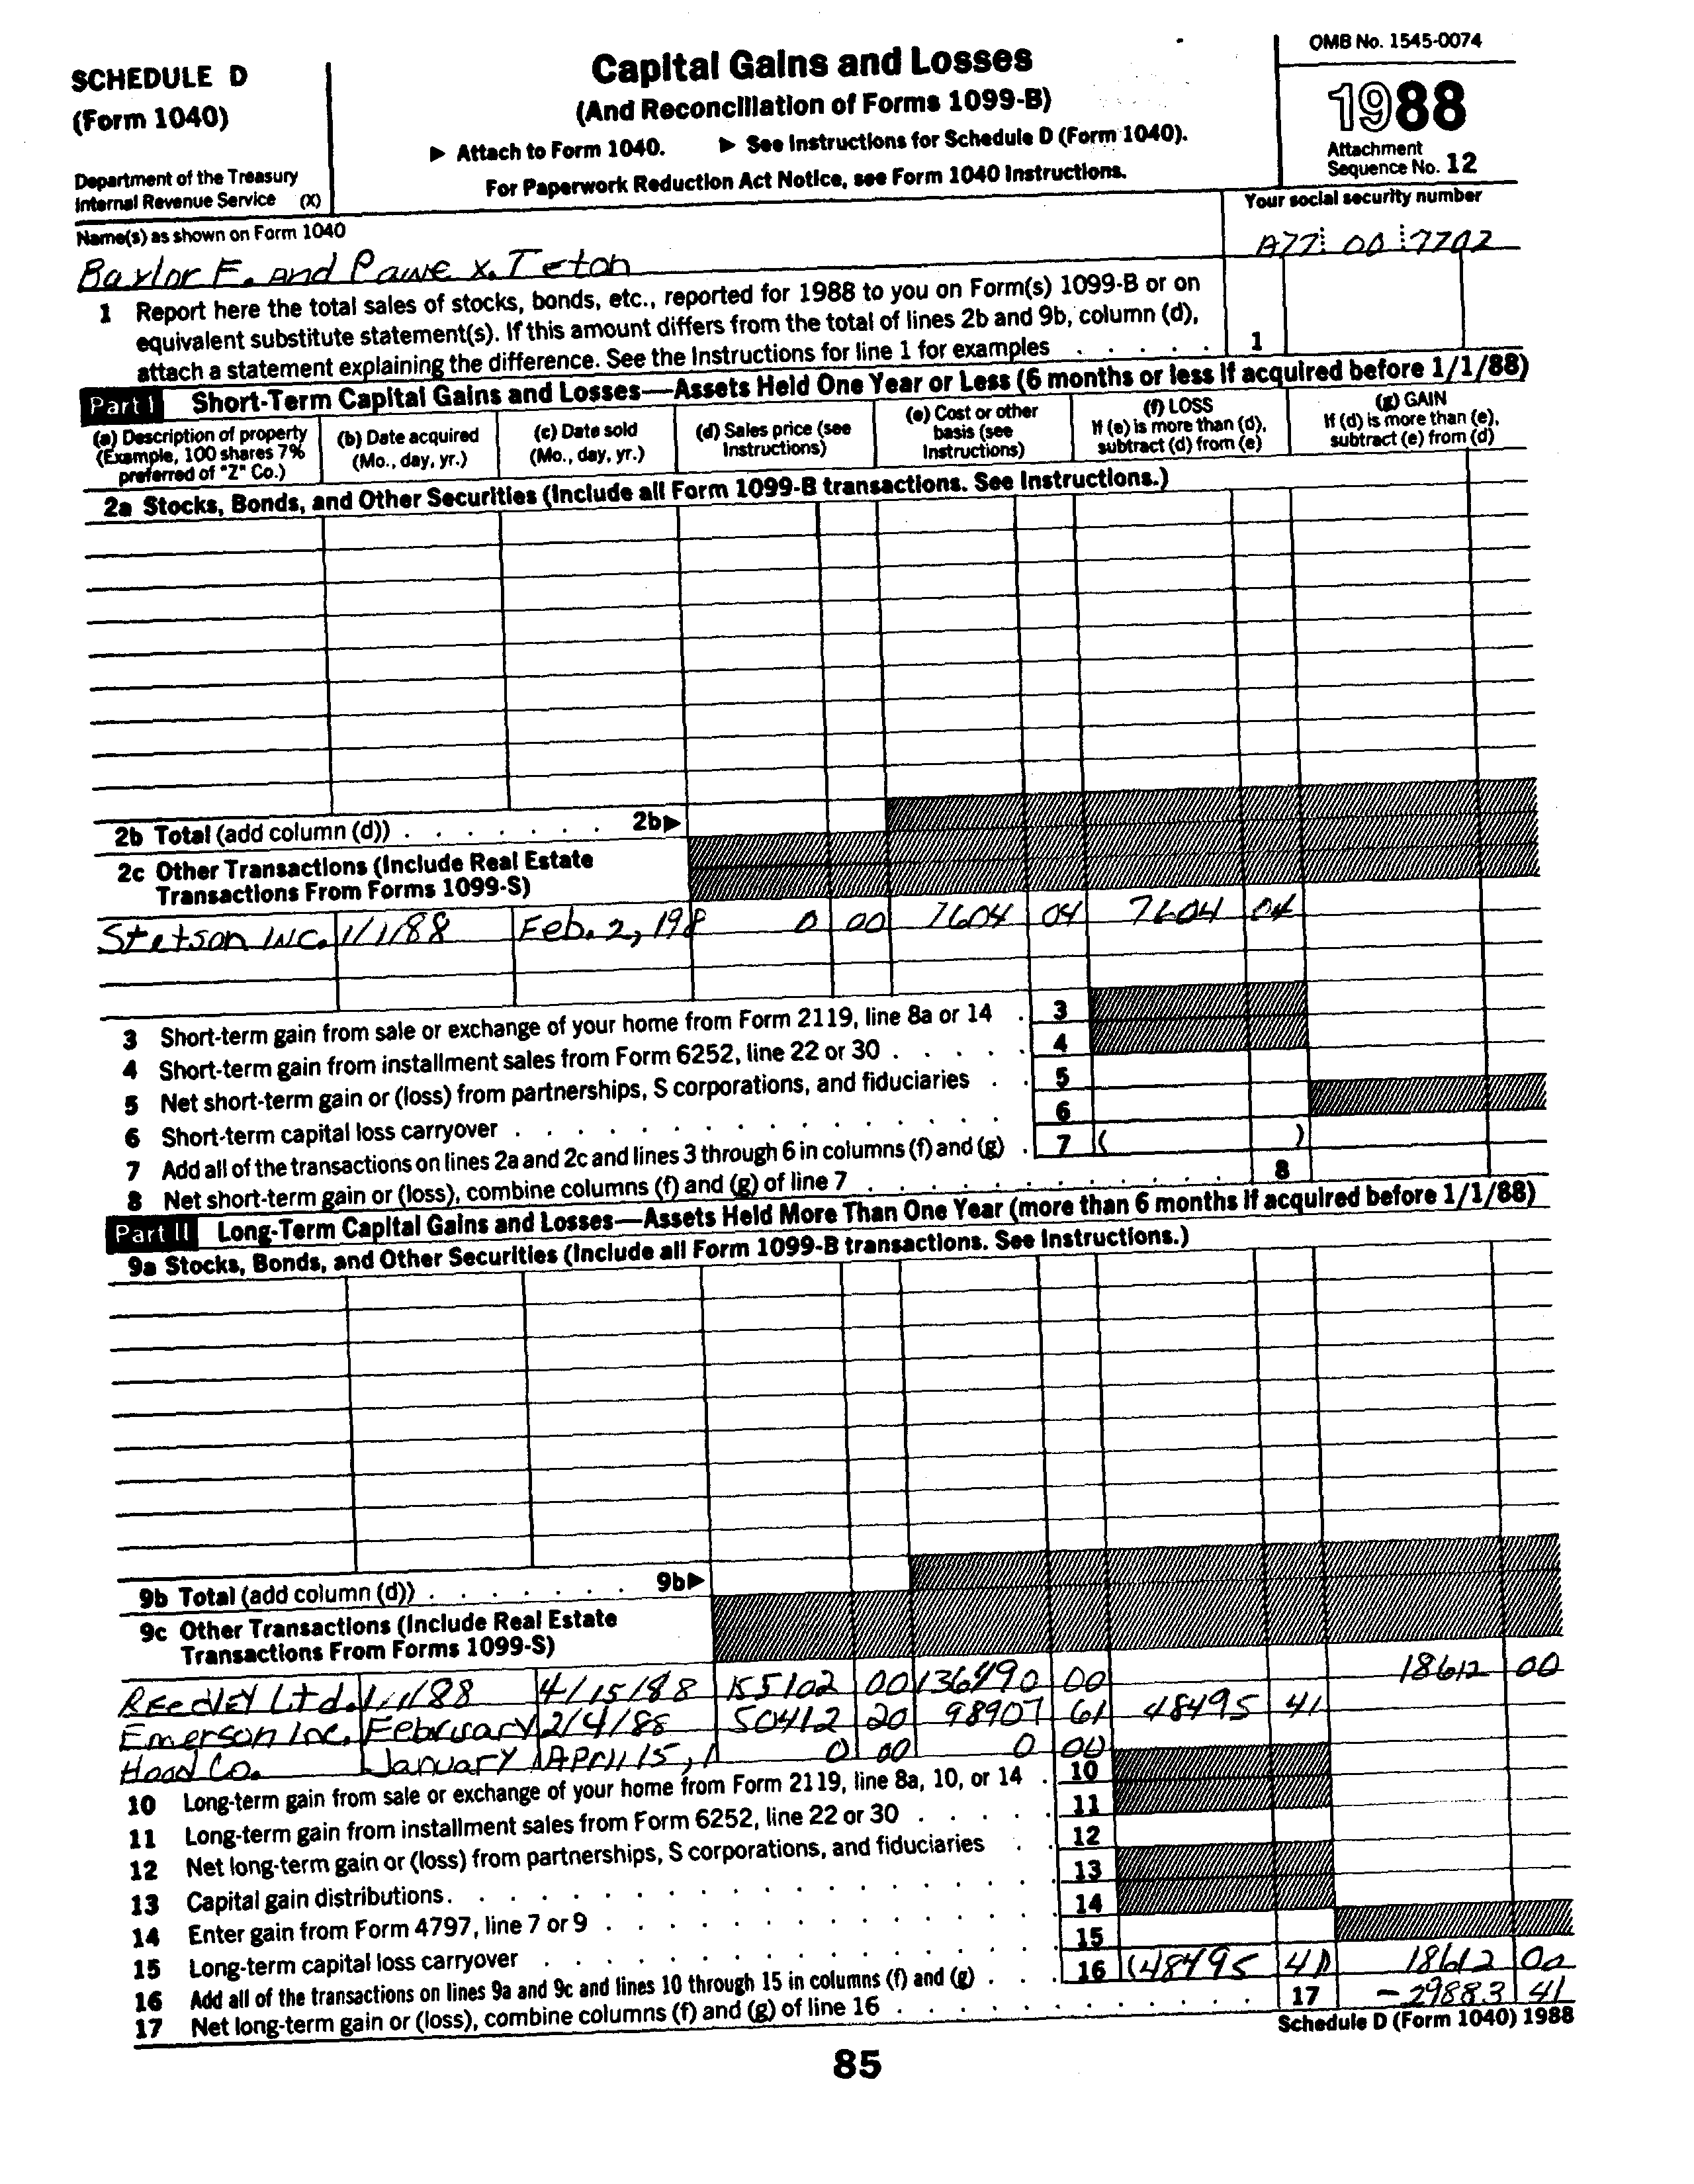 SCHEDULE D
(Form 1040)
Department of the Treasury
Internal Revenue Service (X)
Capital Gains and Losses
(And Reconciliation of Forms 1099-B)
▶ Attach to Form 1040. ▶ See Instructions for Schedule D (Form 1040).
For Paperwork Reduction Act Notice, see Form 1040 Instructions.
OMB No. 1545-0074
1988
Attachment
Sequence No. 12
Name(s) as shown on Form 1040
Your social security number
Baylor F. and Pawe X. Teton
A77 00 7702
1 Report here the total sales of stocks, bonds, etc., reported for 1988 to you on Form(s) 1099-B or on
equivalent substitute statement(s). If this amount differs from the total of lines 2b and 9b, column (d),
attach a statement explaining the difference. See the Instructions for line 1 for examples . . . . . 1
Part I Short-Term Capital Gains and Losses—Assets Held One Year or Less (6 months or less if acquired before 1/1/88)
(a) Description of property
(Example, 100 shares 7%
preferred of "Z" Co.)
(b) Date acquired
(Mo., day, yr.)
(c) Date sold
(Mo., day, yr.)
(d) Sales price (see
Instructions)
(e) Cost or other
basis (see
Instructions)
(f) LOSS
If (e) is more than (d),
subtract (d) from (e)
(g) GAIN
If (d) is more than (e),
subtract (e) from (d)
2a Stocks, Bonds, and Other Securities (Include all Form 1099-B transactions. See Instructions.)
2b Total (add column (d)) . . . . . . . 2b▶
2c Other Transactions (Include Real Estate
Transactions From Forms 1099-S)
Stetson INC. 1/1/88 Feb. 2, 198 0 00 7604 04 7604 04
3 Short-term gain from sale or exchange of your home from Form 2119, line 8a or 14 . 3
4 Short-term gain from installment sales from Form 6252, line 22 or 30 . . . . . 4
5 Net short-term gain or (loss) from partnerships, S corporations, and fiduciaries . . 5
6 Short-term capital loss carryover . . . . . . . . . . . . . . . 6
7 Add all of the transactions on lines 2a and 2c and lines 3 through 6 in columns (f) and (g) . 7 ( )
8 Net short-term gain or (loss), combine columns (f) and (g) of line 7 . . . . . . . . . . . . 8
Part II Long-Term Capital Gains and Losses—Assets Held More Than One Year (more than 6 months if acquired before 1/1/88)
9a Stocks, Bonds, and Other Securities (Include all Form 1099-B transactions. See Instructions.)
9b Total (add column (d)) . . . . . . . 9b▶
9c Other Transactions (Include Real Estate
Transactions From Forms 1099-S)
REEdLEY Ltd. 1/1/88 4/15/88 155102 00 136490 00 18612 00
Emerson Inc. February 2/4/88 50412 20 98907 61 48495 41
Hood Co. January 1 APril 15, 1 0 00 0 00
10 Long-term gain from sale or exchange of your home from Form 2119, line 8a, 10, or 14 . 10
11 Long-term gain from installment sales from Form 6252, line 22 or 30 . . . . . 11
12 Net long-term gain or (loss) from partnerships, S corporations, and fiduciaries . . 12
13 Capital gain distributions . . . . . . . . . . . . . . . . . 13
14 Enter gain from Form 4797, line 7 or 9 . . . . . . . . . . . . 14
15 Long-term capital loss carryover . . . . . . . . . . . . . . 15
16 Add all of the transactions on lines 9a and 9c and lines 10 through 15 in columns (f) and (g) . . . 16 (48495 41) 18612 00
17 Net long-term gain or (loss), combine columns (f) and (g) of line 16 . . . . . . . . . . . . 17 -29883 41
Schedule D (Form 1040) 1988
85